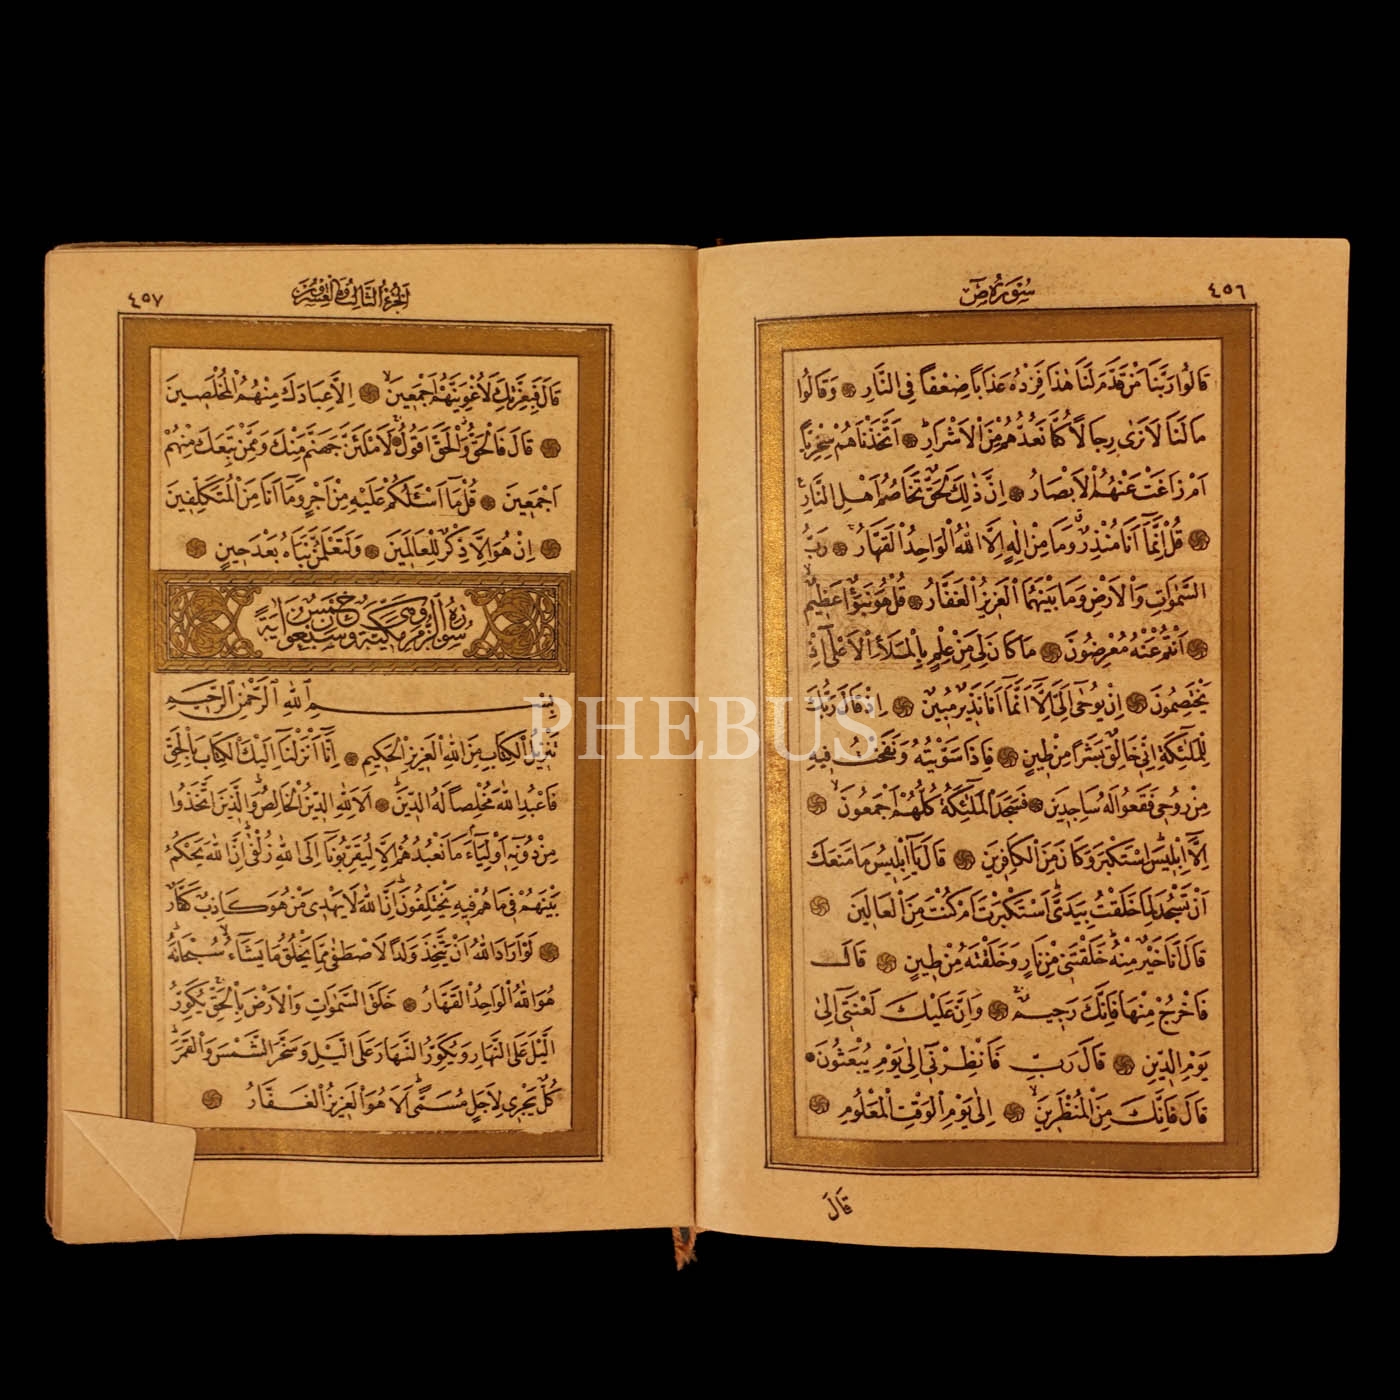 ٤٥٦
سُورَةُ صٓ
قَالُوا رَبَّنَا مَنْ قَدَّمَ لَنَا هٰذَا فَزِدْهُ عَذَابًا ضِعْفًا فِي النَّارِ وَقَالُوا
مَا لَنَا لَا نَرٰى رِجَالًا كُنَّا نَعُدُّهُمْ مِنَ الْاَشْرَارِ اَتَّخَذْنَاهُمْ سِخْرِيًّا
اَمْ زَاغَتْ عَنْهُمُ الْاَبْصَارُ اِنَّ ذٰلِكَ لَحَقٌّ تَخَاصُمُ اَهْلِ النَّارِ
قُلْ اِنَّمَٓا اَنَا مُنْذِرٌ وَمَا مِنْ اِلٰهٍ اِلَّا اللّٰهُ الْوَاحِدُ الْقَهَّارُ رَبُّ
السَّمٰوَاتِ وَالْاَرْضِ وَمَا بَيْنَهُمَا الْعَزِيزُ الْغَفَّارُ قُلْ هُوَ نَبَؤٌا عَظِيمٌ
اَنْتُمْ عَنْهُ مُعْرِضُونَ مَا كَانَ لِيَ مِنْ عِلْمٍ بِالْمَلَاِ الْاَعْلٰٓى اِذْ
يَخْتَصِمُونَ اِنْ يُوحٰٓى اِلَيَّ اِلَّٓا اَنَّمَٓا اَنَا نَذِيرٌ مُبِينٌ اِذْ قَالَ رَبُّكَ
لِلْمَلٰٓئِكَةِ اِنِّي خَالِقٌ بَشَرًا مِنْ طِينٍ فَاِذَا سَوَّيْتُهُ وَنَفَخْتُ فِيهِ
مِنْ رُوحِي فَقَعُوا لَهُ سَاجِدِينَ فَسَجَدَ الْمَلٰٓئِكَةُ كُلُّهُمْ اَجْمَعُونَ
اِلَّٓا اِبْلِيسَ اِسْتَكْبَرَ وَكَانَ مِنَ الْكَافِرِينَ قَالَ يَٓا اِبْلِيسُ مَا مَنَعَكَ
اَنْ تَسْجُدَ لِمَا خَلَقْتُ بِيَدَيَّ اَسْتَكْبَرْتَ اَمْ كُنْتَ مِنَ الْعَالِينَ
قَالَ اَنَا خَيْرٌ مِنْهُ خَلَقْتَنِي مِنْ نَارٍ وَخَلَقْتَهُ مِنْ طِينٍ قَالَ
فَاخْرُجْ مِنْهَا فَاِنَّكَ رَجِيمٌ وَاِنَّ عَلَيْكَ لَعْنَتِٓي اِلٰى
يَوْمِ الدِّينِ قَالَ رَبِّ فَاَنْظِرْنِٓي اِلٰى يَوْمِ يُبْعَثُونَ
قَالَ فَاِنَّكَ مِنَ الْمُنْظَرِينَ اِلٰى يَوْمِ الْوَقْتِ الْمَعْلُومِ
قَالَ
اَلْجُزْءُ الثَّالِثُ وَالْعِشْرُونَ
٤٥٧
قَالَ فَبِعِزَّتِكَ لَاُغْوِيَنَّهُمْ اَجْمَعِينَ اِلَّا عِبَادَكَ مِنْهُمُ الْمُخْلَصِينَ
قَالَ فَالْحَقُّ وَالْحَقَّ اَقُولُ لَاَمْلَئَنَّ جَهَنَّمَ مِنْكَ وَمِمَّنْ تَبِعَكَ مِنْهُمْ
اَجْمَعِينَ قُلْ مَٓا اَسْـَٔلُكُمْ عَلَيْهِ مِنْ اَجْرٍ وَمَٓا اَنَا مِنَ الْمُتَكَلِّفِينَ
اِنْ هُوَ اِلَّا ذِكْرٌ لِلْعَالَمِينَ وَلَتَعْلَمُنَّ نَبَاَهُ بَعْدَ حِينٍ
سُورَةُ الزُّمَرِ مَكِّيَّةٌ وَهِيَ خَمْسٌ وَسَبْعُونَ اٰيَةً
بِسْمِ اللّٰهِ الرَّحْمٰنِ الرَّحِيمِ
تَنْزِيلُ الْكِتَابِ مِنَ اللّٰهِ الْعَزِيزِ الْحَكِيمِ اِنَّٓا اَنْزَلْنَٓا اِلَيْكَ الْكِتَابَ بِالْحَقِّ
فَاعْبُدِ اللّٰهَ مُخْلِصًا لَهُ الدِّينَ اَلَا لِلّٰهِ الدِّينُ الْخَالِصُ وَالَّذِينَ اتَّخَذُوا
مِنْ دُونِهِٓ اَوْلِيَٓاءَ مَا نَعْبُدُهُمْ اِلَّا لِيُقَرِّبُونَٓا اِلَى اللّٰهِ زُلْفٰى اِنَّ اللّٰهَ يَحْكُمُ
بَيْنَهُمْ فِي مَا هُمْ فِيهِ يَخْتَلِفُونَ اِنَّ اللّٰهَ لَا يَهْدِي مَنْ هُوَ كَاذِبٌ كَفَّارٌ
لَوْ اَرَادَ اللّٰهُ اَنْ يَتَّخِذَ وَلَدًا لَاصْطَفٰى مِمَّا يَخْلُقُ مَا يَشَٓاءُ سُبْحَانَهُ
هُوَ اللّٰهُ الْوَاحِدُ الْقَهَّارُ خَلَقَ السَّمٰوَاتِ وَالْاَرْضَ بِالْحَقِّ يُكَوِّرُ
الَّيْلَ عَلَى النَّهَارِ وَيُكَوِّرُ النَّهَارَ عَلَى الَّيْلِ وَسَخَّرَ الشَّمْسَ وَالْقَمَرَ
كُلٌّ يَجْرِي لِاَجَلٍ مُسَمًّى اَلَا هُوَ الْعَزِيزُ الْغَفَّارُ
PHEBUS